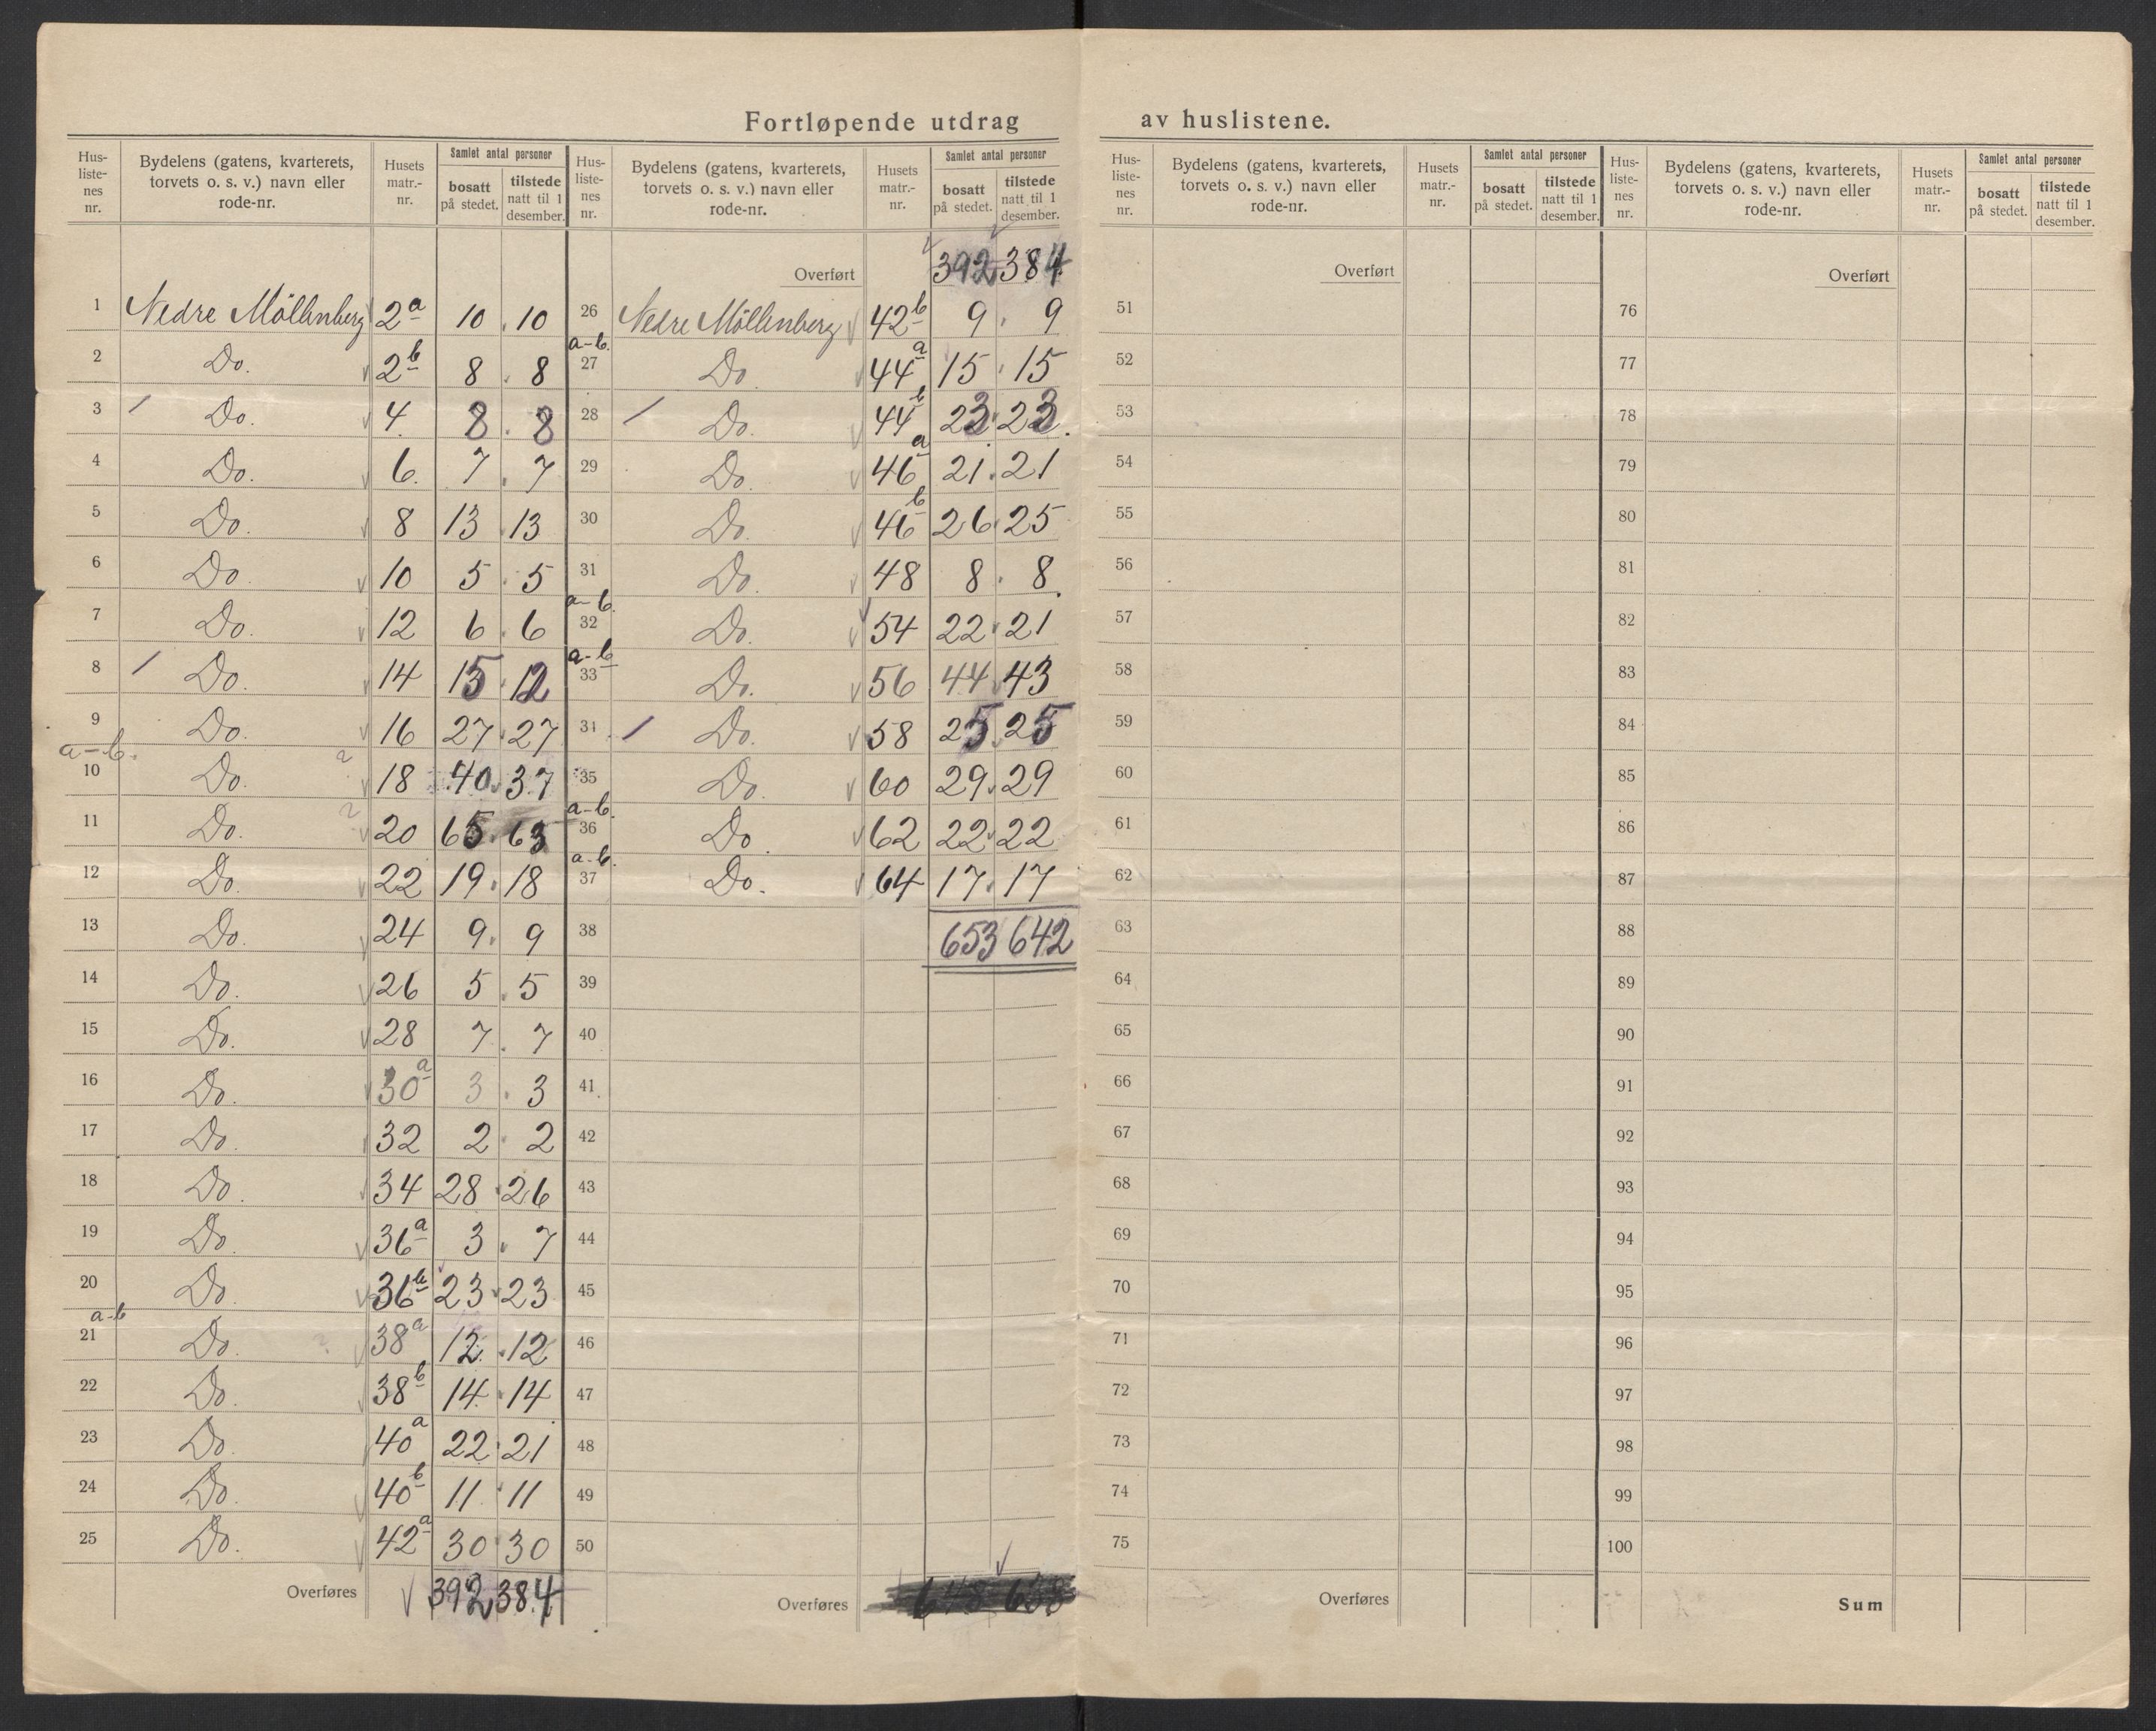 Fortløpende utdrag av huslistene.
Hus-liste-nes nr. | Bydelens (gatens, kvarterets, torvets o. s. v.) navn eller rode-nr. | Husets matr.-nr. | Samlet antal personer | bosatt på stedet. | tilstede natt til 1 desember.
1 Nedre Möllenberg 2a 10 10
2 Do. 2b 8 8
3 Do. 4. 8 8
4 Do. 6. 7 7
5 Do. 8 13 13
6 Do. 10 5 5
7 Do. 12 6 6
8 Do. 14 15 12
9 Do. 16 27 27
a-b. 10 Do. 18 40 37
11 Do. 20 65 63
12 Do. 22 19 18
13 Do. 24 9 9
14 Do. 26 5 5
15 Do. 28 7 7
16 Do. 30a 3 3
17 Do. 32 2 2
18 Do. 34 28 26
19 Do. 36a 3 7
20 Do. 36b 23 23
a-b 21 Do. 38a 12 12
22 Do. 38b 14 14
23 Do. 40a 22 21
24 Do. 40b 11 11
25 Do. 42a 30 30
Overføres 392 384
Hus-liste-nes nr. | Bydelens (gatens, kvarterets, torvets o. s. v.) navn eller rode-nr. | Husets matr.-nr. | Samlet antal personer | bosatt på stedet. | tilstede natt til 1 desember.
Overført 392 384
26 Nedre Möllenberg 42b 9 9
a-b. 27 Do. 44a 15 15
28 Do. 44b 23 23.
29 Do. 46a 21 21
30 Do. 46b 26 25
31 Do. 48 8 8
a-b. 32 Do. 54 22 21
a-b 33 Do. 56 44 43
34 Do. 58 25 25
35 Do. 60 29 29
a-b. 36 Do. 62 22 22
a-b. 37 Do. 64 17 17
38 653 642
39
40
41
42
43
44
45
46
47
48
49
50
Overføres 638
Hus-liste-nes nr. | Bydelens (gatens, kvarterets, torvets o. s. v.) navn eller rode-nr. | Husets matr.-nr. | Samlet antal personer | bosatt på stedet. | tilstede natt til 1 desember.
Overført
51
52
53
54
55
56
57
58
59
60
61
62
63
64
65
66
67
68
69
70
71
72
73
74
75
Overføres
Hus-liste-nes nr. | Bydelens (gatens, kvarterets, torvets o. s. v.) navn eller rode-nr. | Husets matr.-nr. | Samlet antal personer | bosatt på stedet. | tilstede natt til 1 desember.
Overført
76
77
78
79
80
81
82
83
84
85
86
87
88
89
90
91
92
93
94
95
96
97
98
99
100
Sum